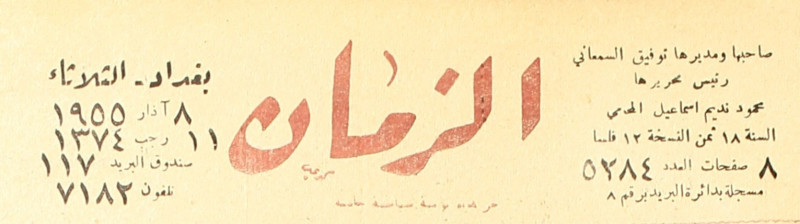 صاحبها ومديرها توفيق السمعاني
رئيس تحريرها
محمود نديم اسماعيل المحامي
السنة ١٨ ثمن النسخة ١٢ فلسا
٨ صفحات العدد ٥٢٨٤
مسجلة بدائرة البريد برقم ٨
الزمان
جريدة يومية سياسية
بغداد - الثلاثاء
٨ آذار ١٩٥٥
١١ رجب ١٣٧٤
صندوق البريد ١١٧
تلفون ٧١٨٢